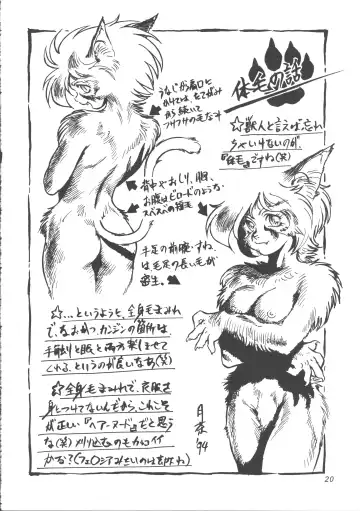 体毛の話
☆獣人と言えば忘れ
ちゃいけないのが、
『体毛』ですね(笑)
うなじから肩口に
かけては、たてがみ
から続いて
フサフサの毛なす
背中やおしり、胸、
お腹はビロードのような
スベスベの短毛
手足の前腕・すね
は毛足の長い毛が
密生。
☆…というように、全身毛まみれ
で、なおかつカンジンの箇所は
手触りと眼と両方楽しませて
くれる、というのが良いなあ(笑)
☆全身毛まみれで、衣服は
身につけてないんだから、これこそ
が正しい『ヘアーヌード』だと思う
な(笑)刈り込むのもカワイイ
かな?(フェロシアみたいのは苦手ね)
'94
20